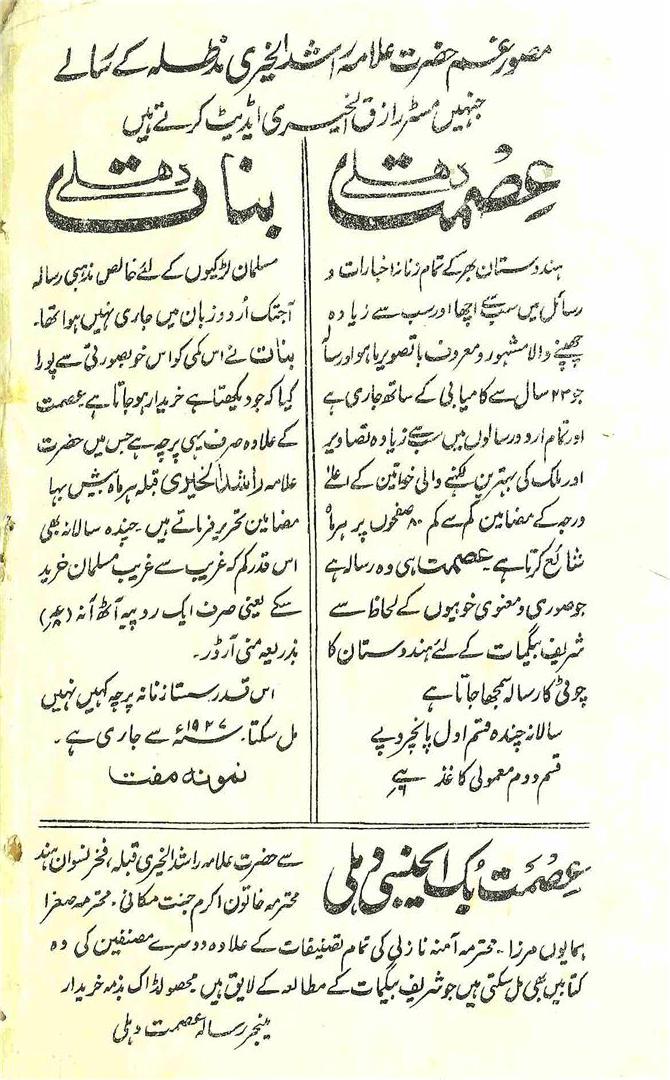 مصور غم حضرت علامہ راشد الخیری مدظلہ کے رسالے
جنہیں مسٹر رازق الخیری ایڈیٹ کرتے ہیں
عصمت دهلی
ہندوستان بھر کے تمام زنانہ اخبارات و
رسائل میں سب سے اچھا اور سب سے زیادہ
چھپنے والا مشہور و معروف باتصویر ماہوار رسالہ
جو ۲۳ سال سے کامیابی کے ساتھ جاری ہے
اور تمام اردو رسالوں میں سب سے زیادہ تصاویر
اور ملک کی بہترین لکھنے والی خواتین کے اعلےٰ
درجہ کے مضامین کم سے کم ۸۰ صفحوں پر ہر ماہ
شائع کرتا ہے۔ عصمت ہی وہ رسالہ ہے
جو صوری و معنوی خوبیوں کے لحاظ سے
شریف بیگمات کے لئے ہندوستان کا
چوٹی کا رسالہ سمجھا جاتا ہے
سالانہ چندہ قسم اول پانچروپے
قسم دوم معمولی کاغذ
بنات دهلی
مسلمان لڑکیوں کے لئے خالص مذہبی رسالہ
آجتک اُردو زبان میں جاری نہیں ہوا تھا۔
بنات نے اس کمی کو اس خوبصورتی سے پورا
کیا کہ جو دیکھتا ہے خریدار ہو جاتا ہے۔ عصمت
کے علاوہ صرف یہی پرچہ ہے جس میں حضرت
علامہ راشد الخیری قبلہ ہر ماہ بیش بہا
مضامین تحریر فرماتے ہیں۔ چندہ سالانہ بھی
اس قدر کم کہ غریب سے غریب مسلمان خرید
سکے یعنی صرف ایک روپیہ آٹھ آنہ
بذریعہ منی آرڈر۔
اس قدر سستا زنانہ پرچہ کہیں نہیں
مل سکتا۔ سنہ ۱۹۲۷ء سے جاری ہے۔
نمونہ مفت
عصمت بک ایجنسی دہلی
سے حضرت علامہ راشد الخیری قبلہ، فخر نسوان ہند
محترمہ خاتون اکرم جنت مکانی۔ محترمہ صغرا
ہمایوں مرزا۔ محترمہ آمنہ نازلی کی تمام تصنیفات کے علاوہ دوسرے مصنفین کی وہ
کتابیں بھی مل سکتی ہیں جو شریف بیگمات کے مطالعہ کے لایق ہیں۔ محصولڈاک بذمہ خریدار
مینجر رسالہ عصمت دہلی